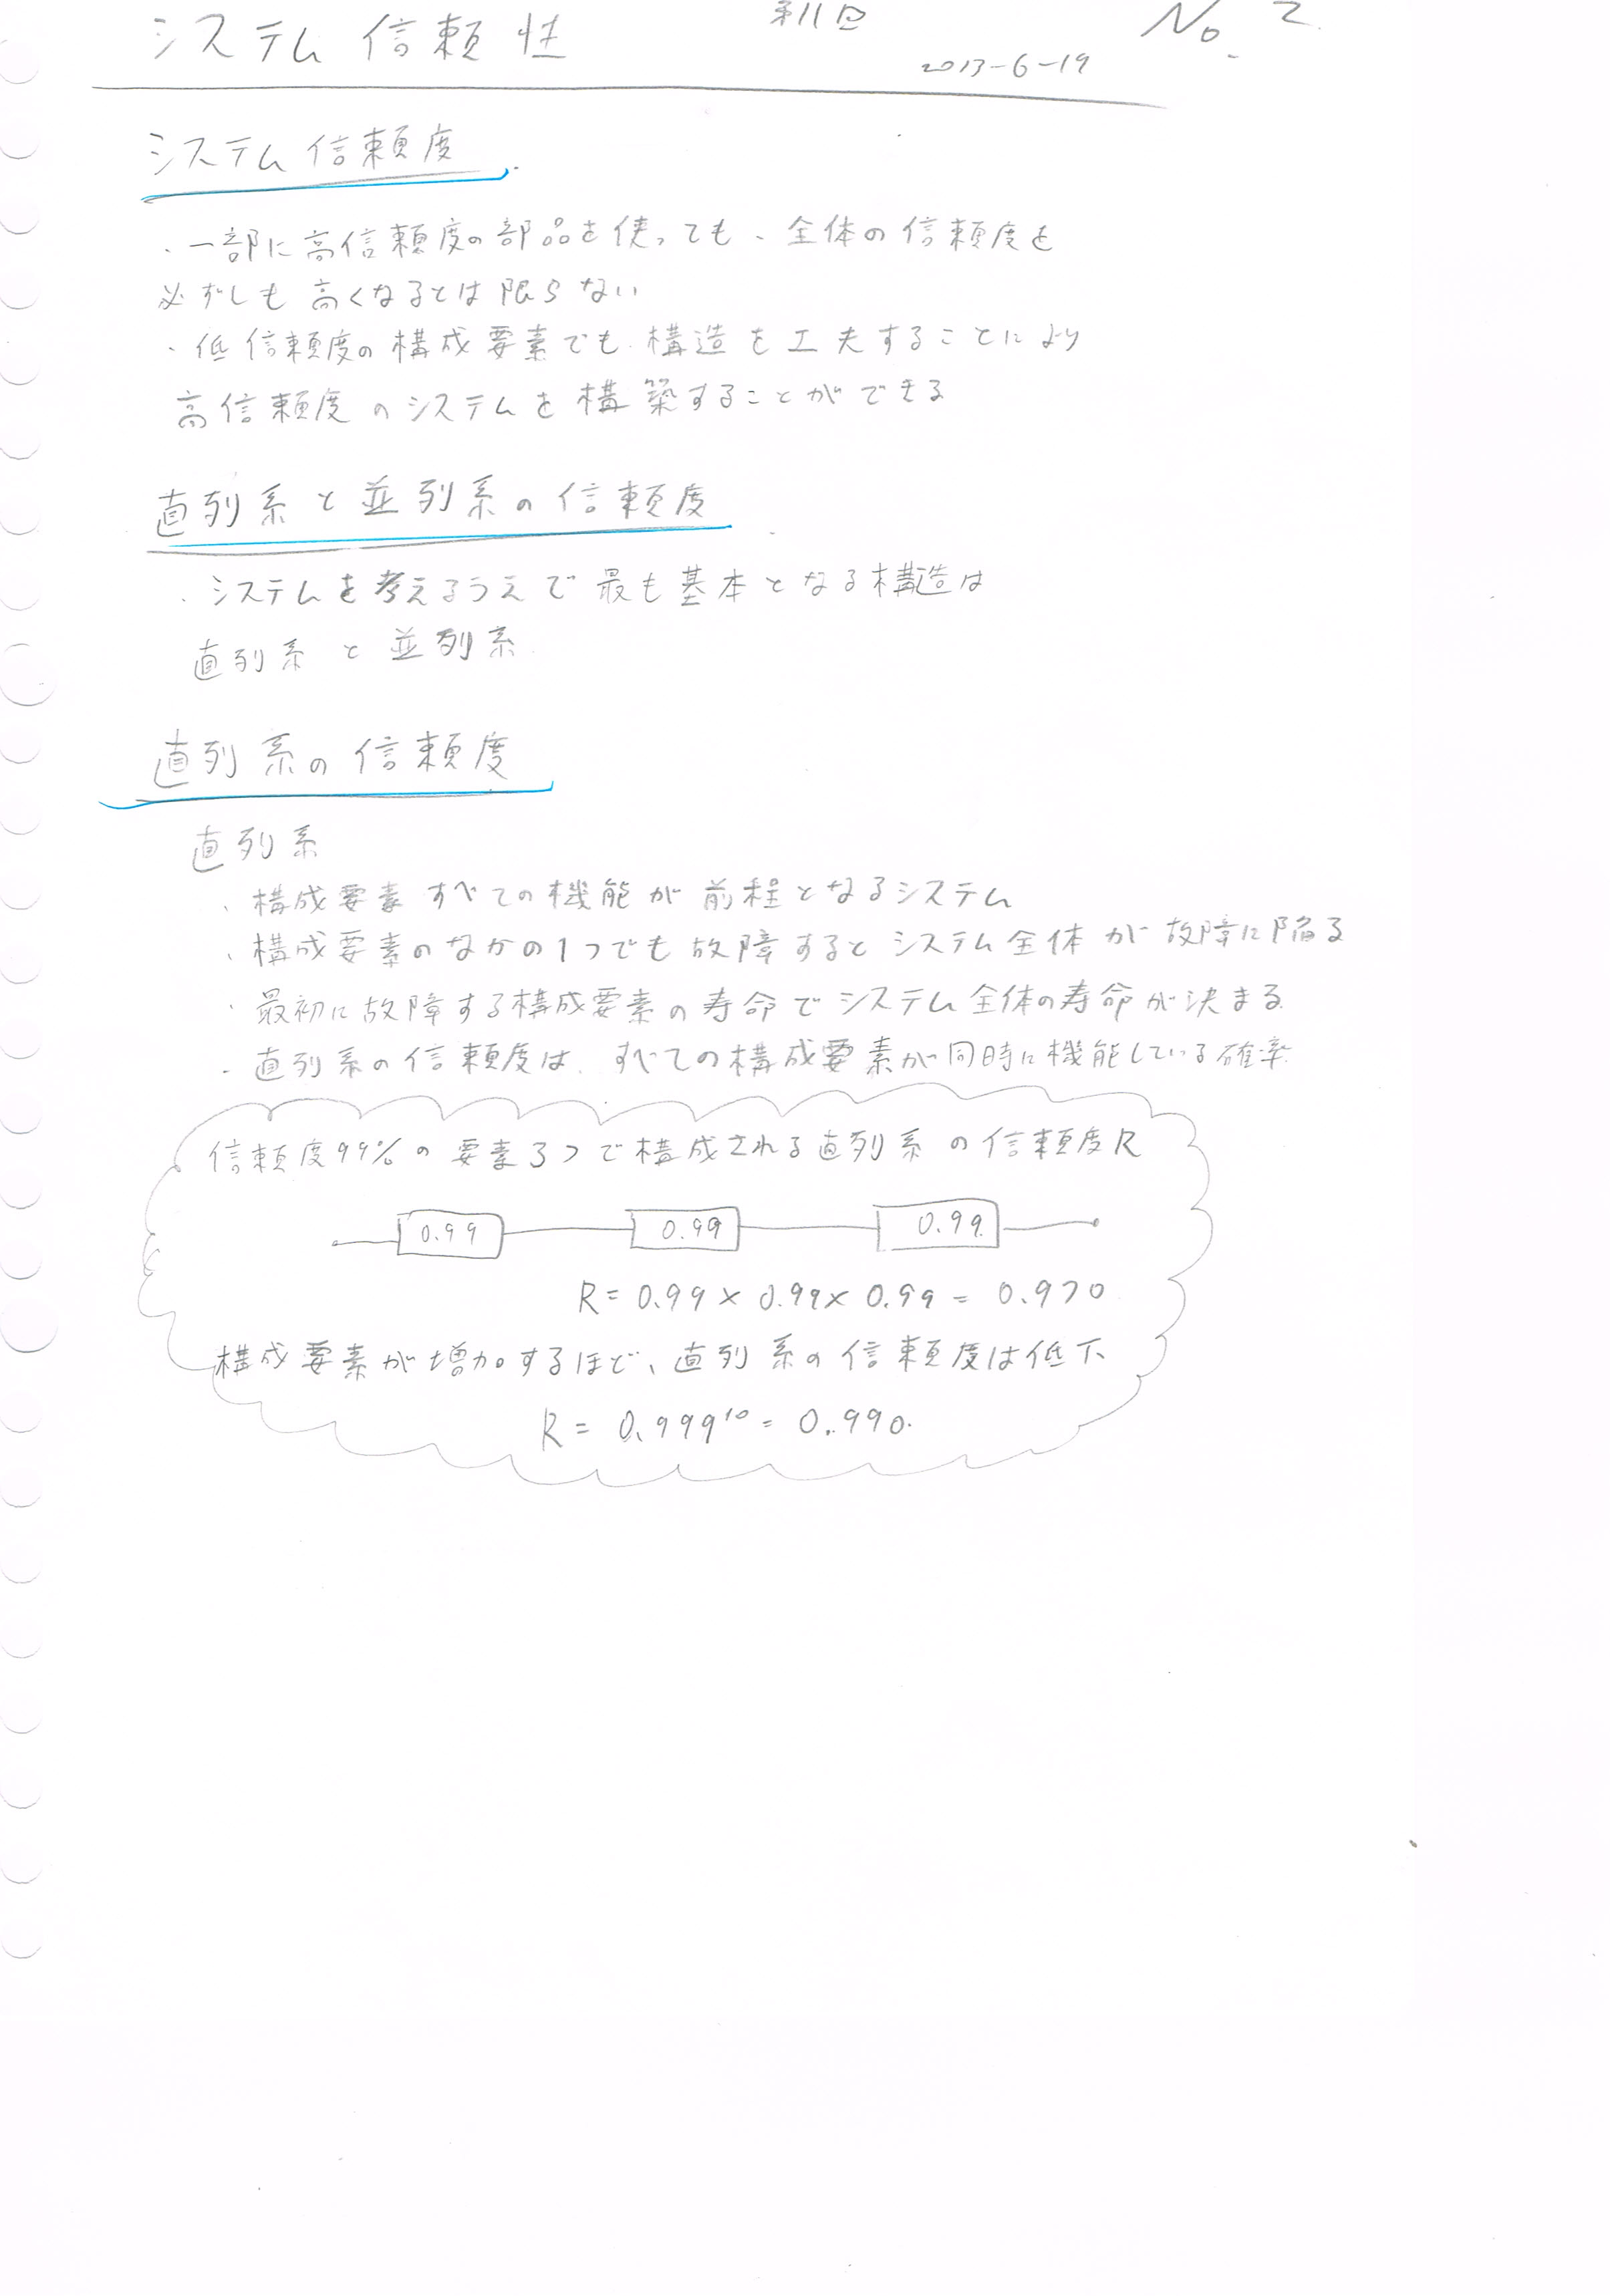 システム信頼性 第11回 No. 2
2013-6-19
システム信頼度
・一部に高信頼度の部品を使っても、全体の信頼度を
必ずしも高くなるとは限らない
・低信頼度の構成要素でも構造を工夫することにより
高信頼度のシステムを構築することができる
直列系と並列系の信頼度
・システムを考えるうえで最も基本となる構造は
直列系と並列系
直列系の信頼度
直列系
・構成要素すべての機能が前程となるシステム
・構成要素のなかの1つでも故障するとシステム全体が故障に陥る
・最初に故障する構成要素の寿命でシステム全体の寿命が決まる
・直列系の信頼度は、すべての構成要素が同時に機能している確率
信頼度99%の要素3つで構成される直列系の信頼度R
0.99 0.99 0.99
R=0.99×0.99×0.99=0.970
構成要素が増加するほど、直列系の信頼度は低下
R=0.999¹⁰=0.990